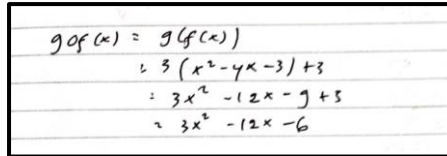 gof(x) = g(f(x))
= 3(x²-4x-3)+3
= 3x² -12x -9 +3
= 3x² -12x -6